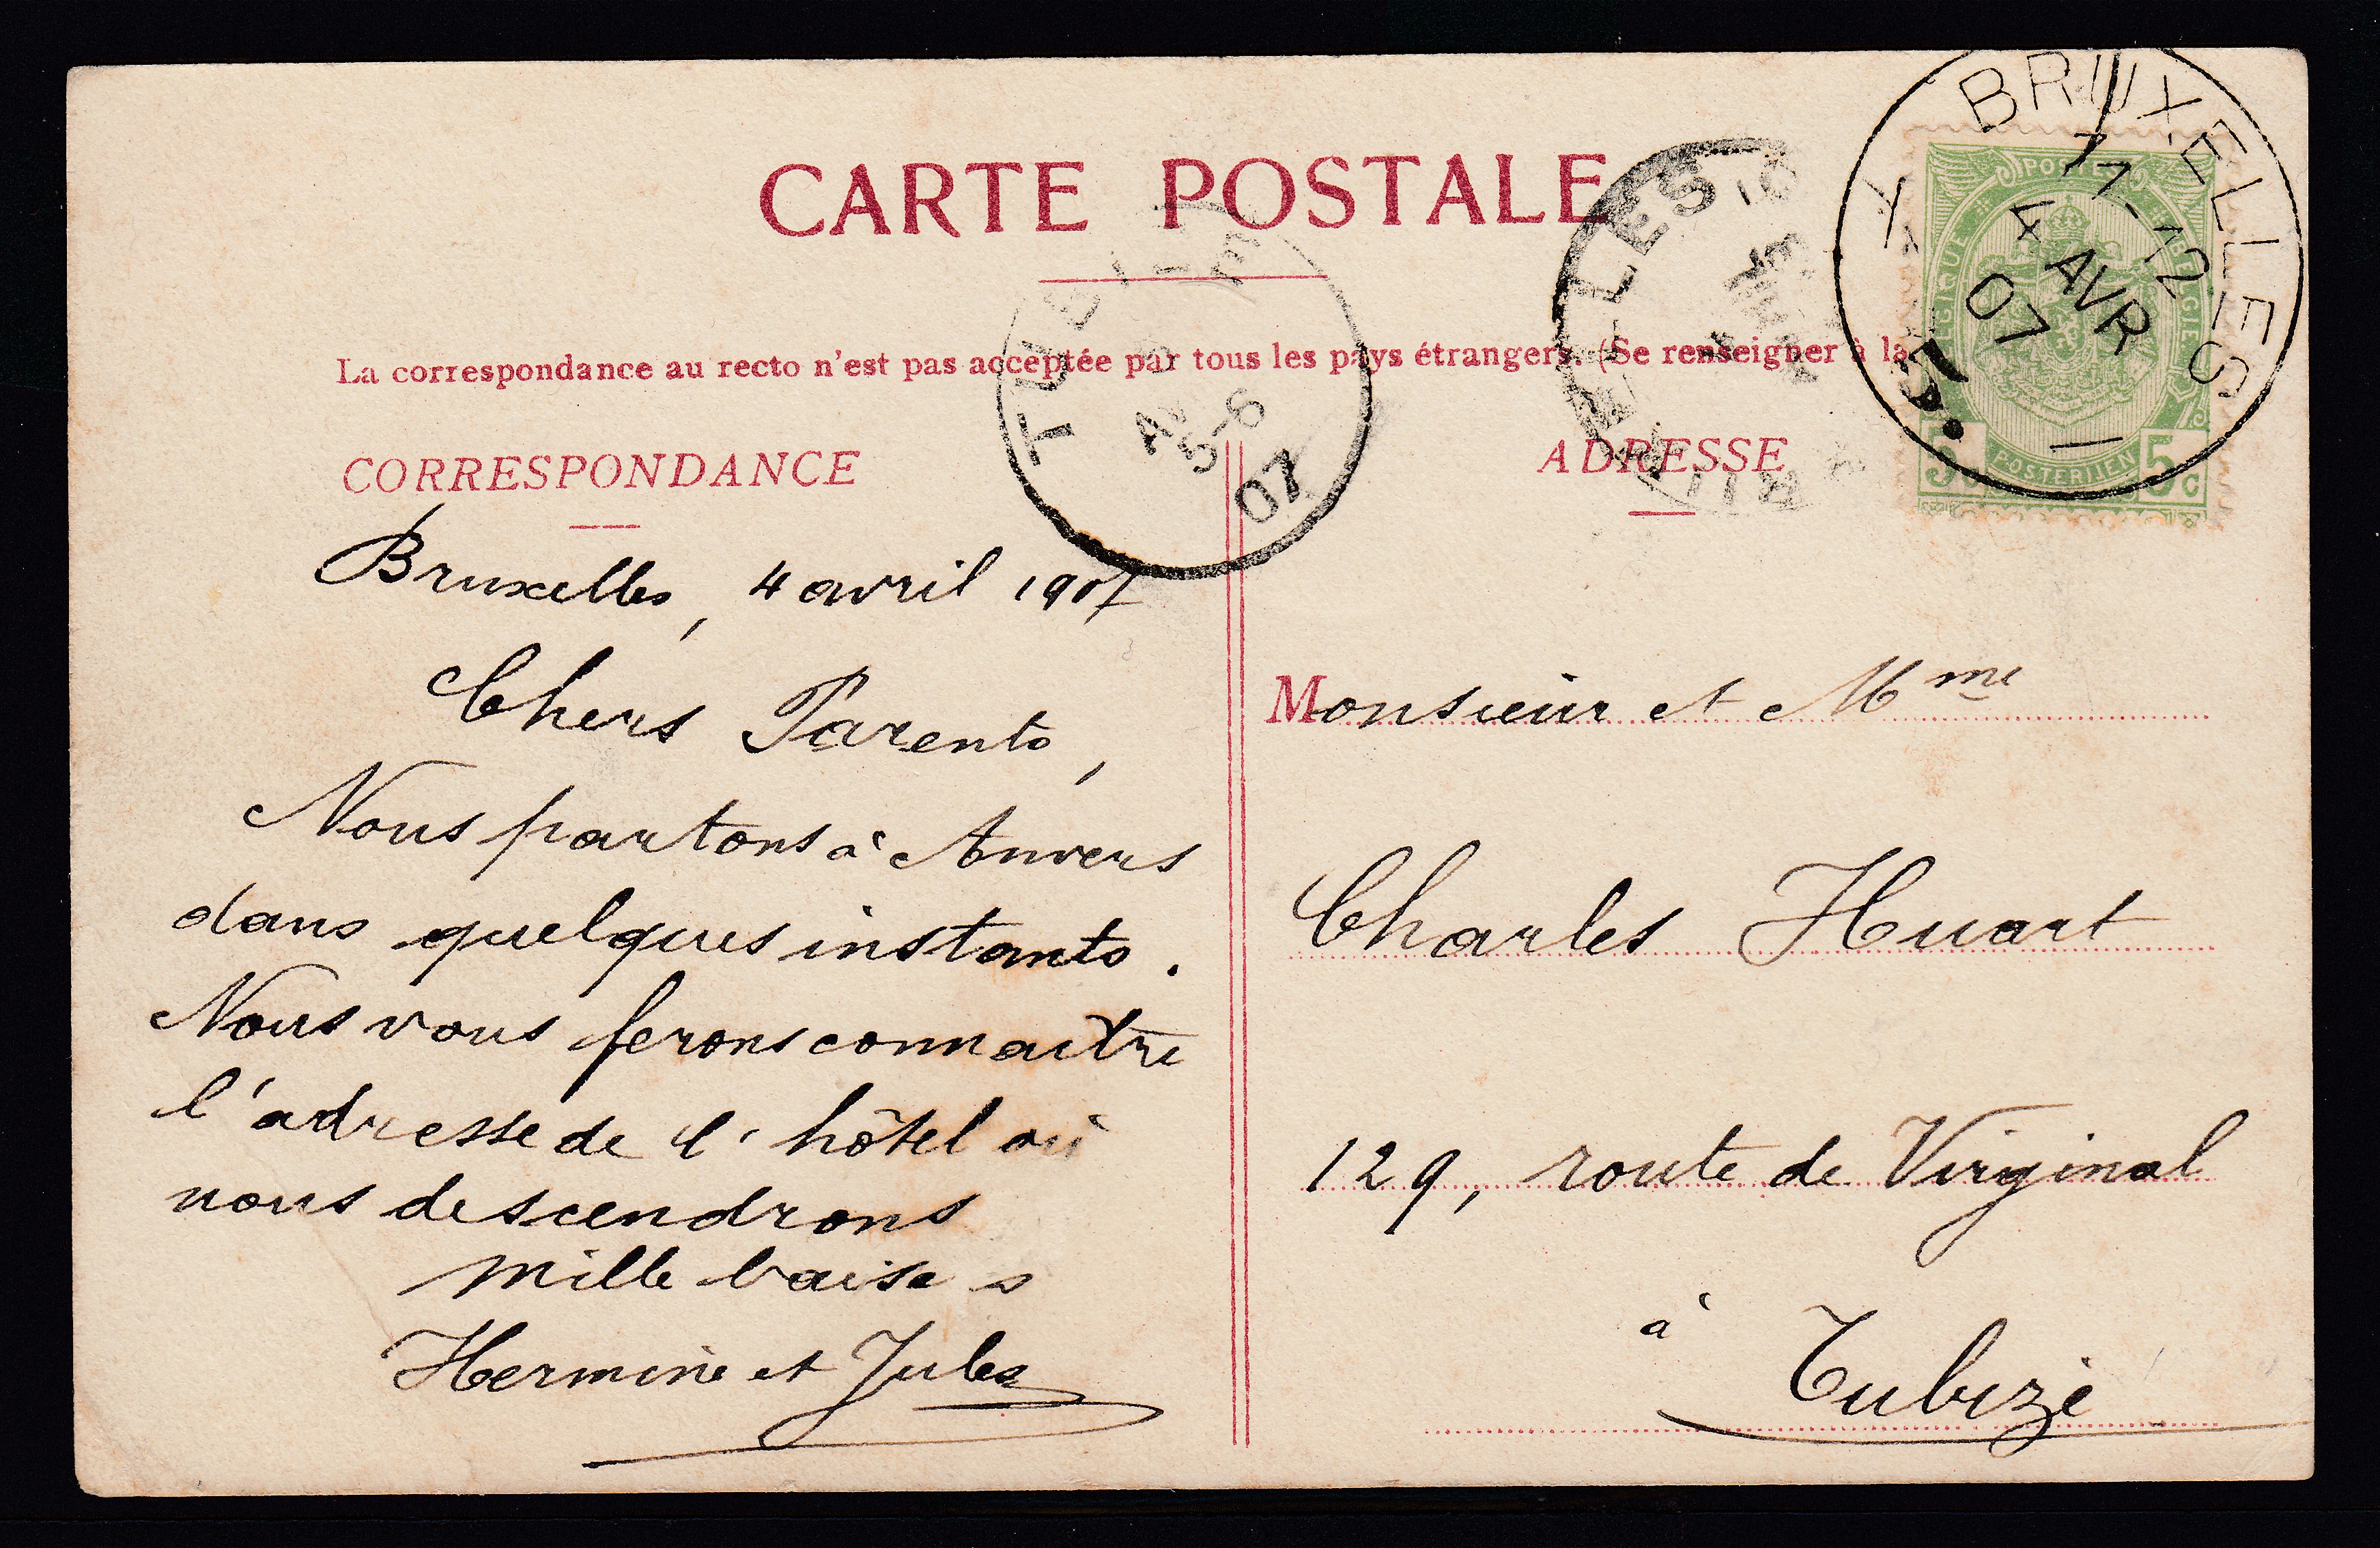 CARTE POSTALE
La correspondance au recto n'est pas acceptée par tous les pays étrangers. (Se renseigner à la
CORRESPONDANCE
ADRESSE
BRUXELLES
11-12
4 AVR
07
1
POSTES
BELGIQUE
BELGIE
POSTERIJEN
5c 5c
5-6
07
Bruxelles, 4 avril 1907
Chers Parents,
Nous partons à Anvers
dans quelques instants.
Nous vous ferons connaître
l'adresse de l'hôtel où
nous descendrons
Mille baise s
Hermine et Jules
Monsieur et Mme
Charles Huart
129, route de Virginal
à Tubize